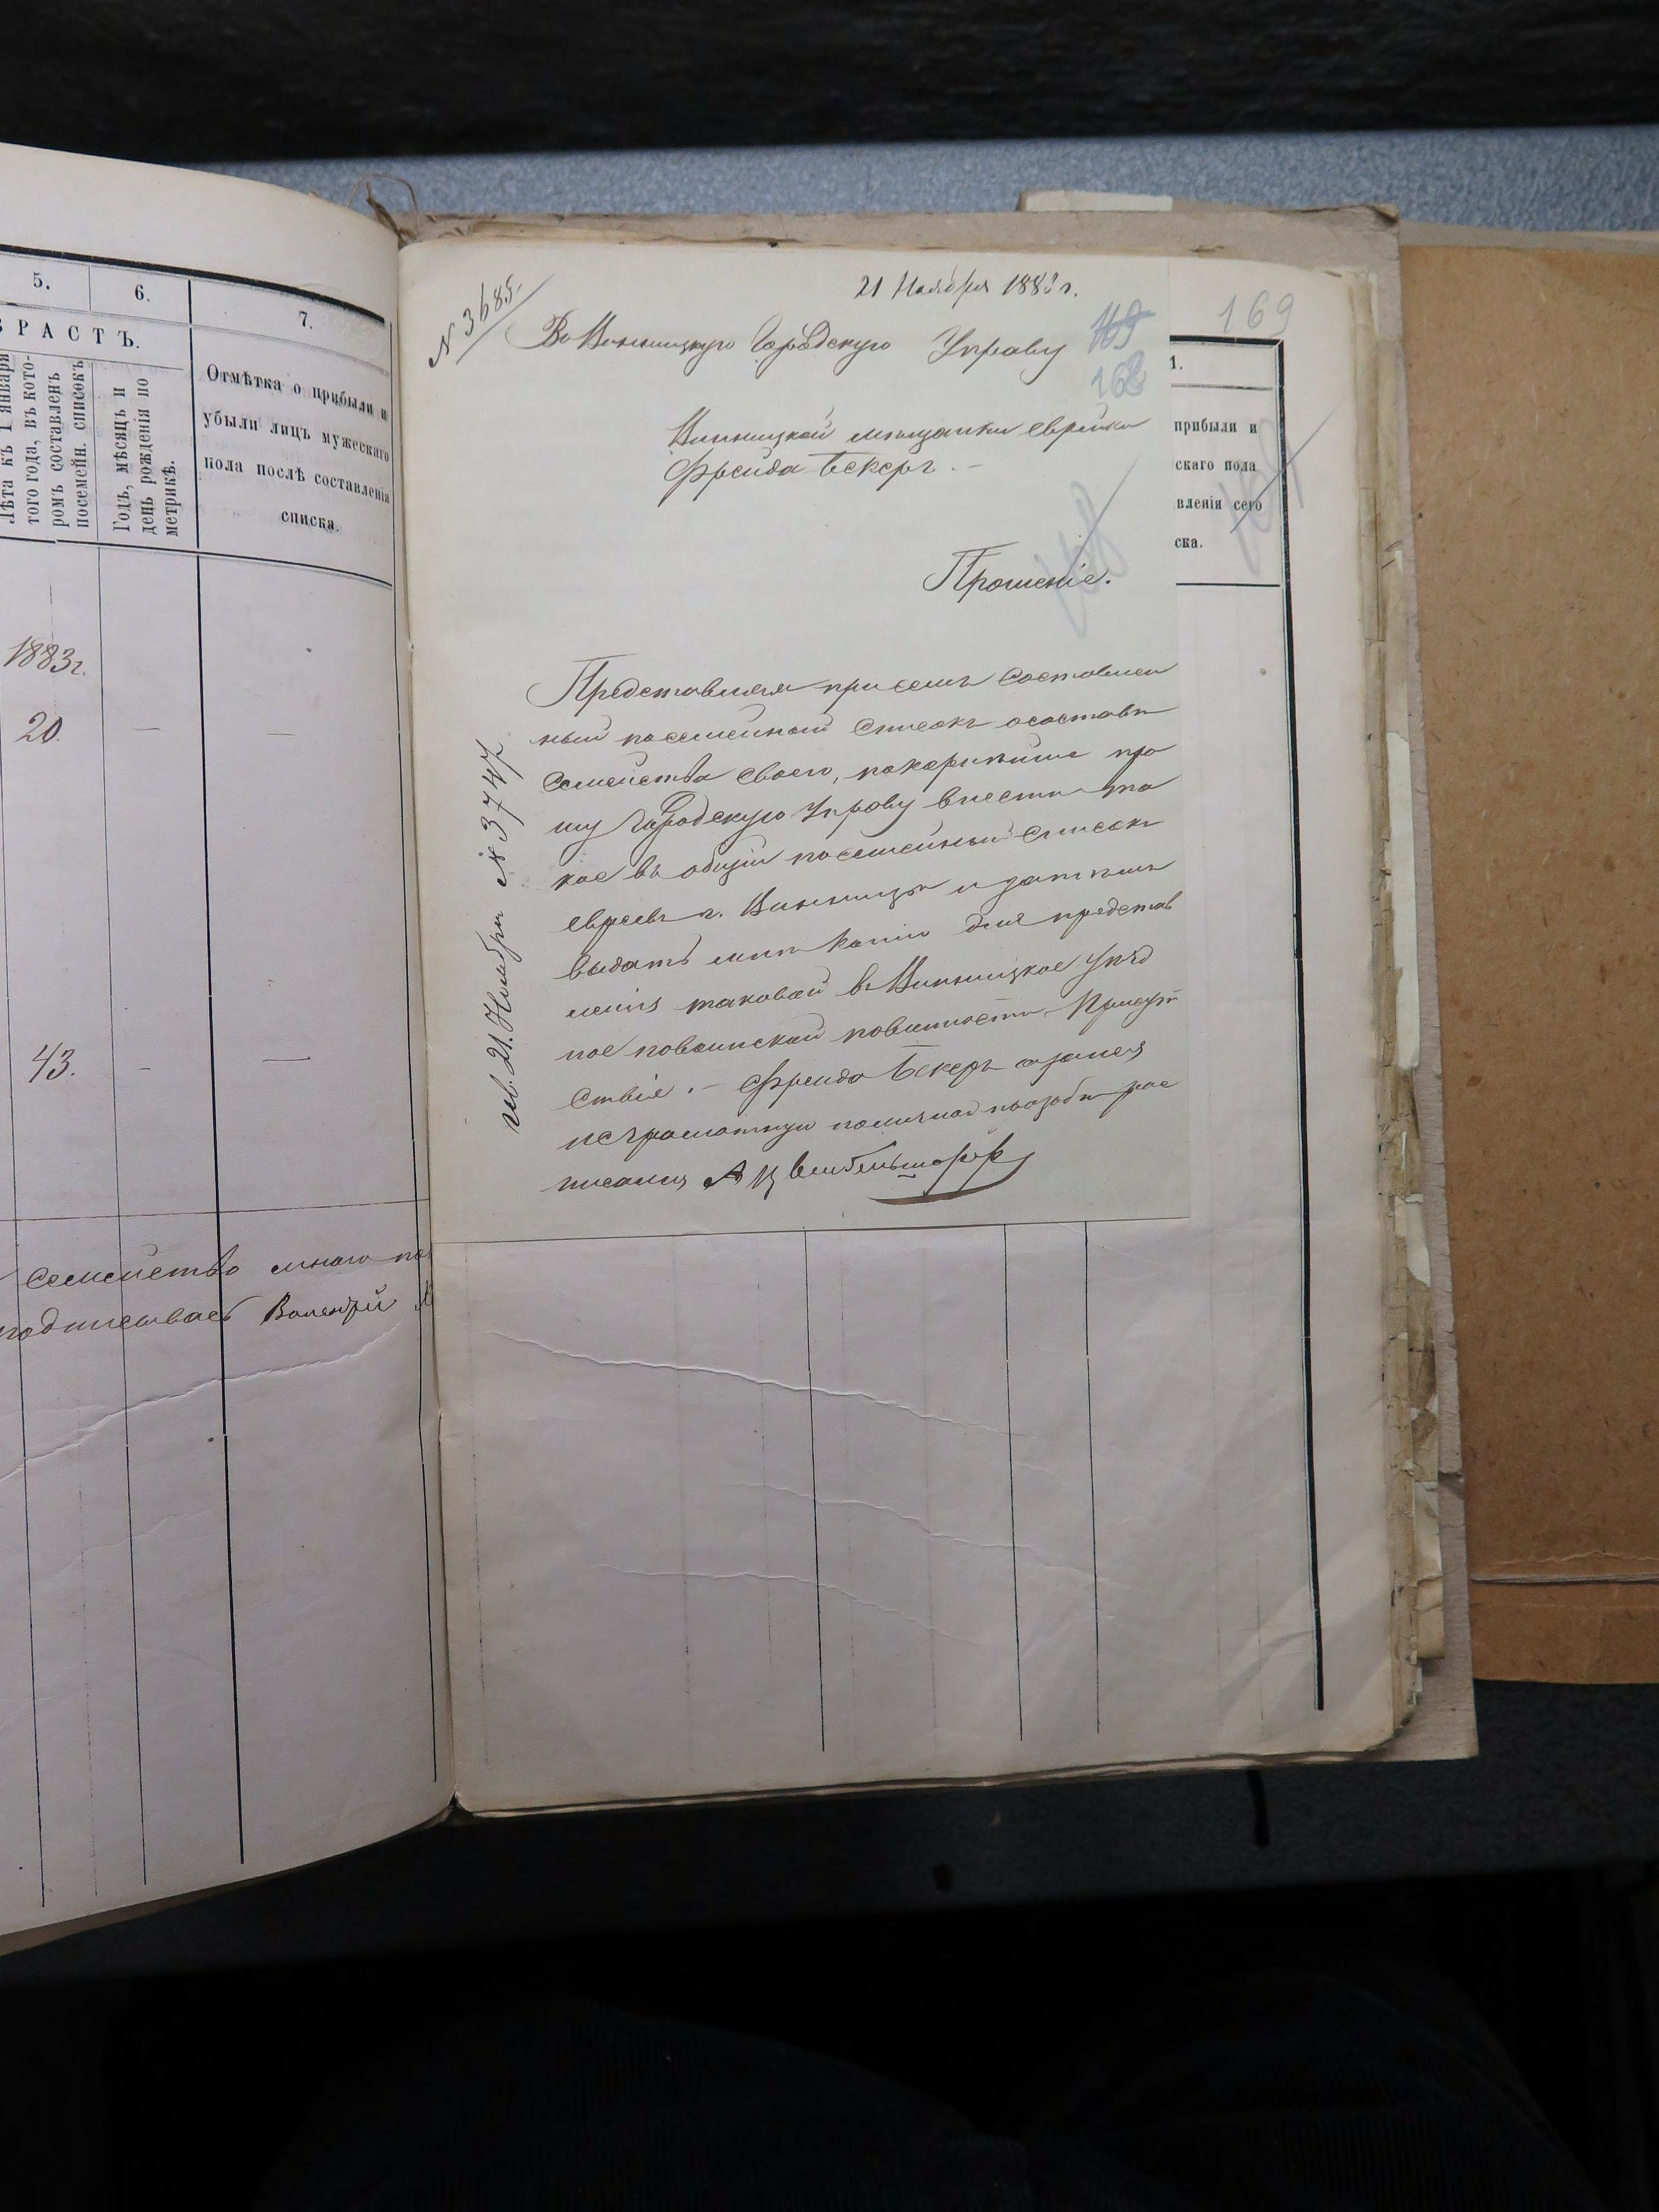 5.
6.
7.
РАСТЪ.
Лѣта къ 1 января
того года, въ кото-
ромъ составленъ
посемейн. списокъ
Годъ, мѣсяцъ и
день рожденія по
метрикѣ.
Отмѣтка о прибыли и
убыли лицъ мужескаго
пола послѣ составленія
списка.
1883г.
20. — —
43. - —
Семейство
подписывает Валентрй
№ 3685.
21 Ноября 1883 г.
169
Въ Винницкую Городскую Управу
169
168
Винницкой мѣщанки еврейки
Фрейда Бекеръ. –
Прошеніе.
Представляя при семъ составлен
ный посемейный списокъ о составѣ
семейства своего, покорнѣйше про
шу Городскую Управу внести та
кое въ общій посемейный списокъ
евреевъ г. Винницы и затѣмъ
выдать мнѣ копію для представ
ленія таковой въ Винницкое уѣзд
ное по воинской повинности Присут
ствіе. – Фрейда Бекеръ а за нея
неграмотную по личной просьбѣ рос
писался А
21. Ноября № 3747
1.
прибыли и
скаго пола
вленія сего
ска.